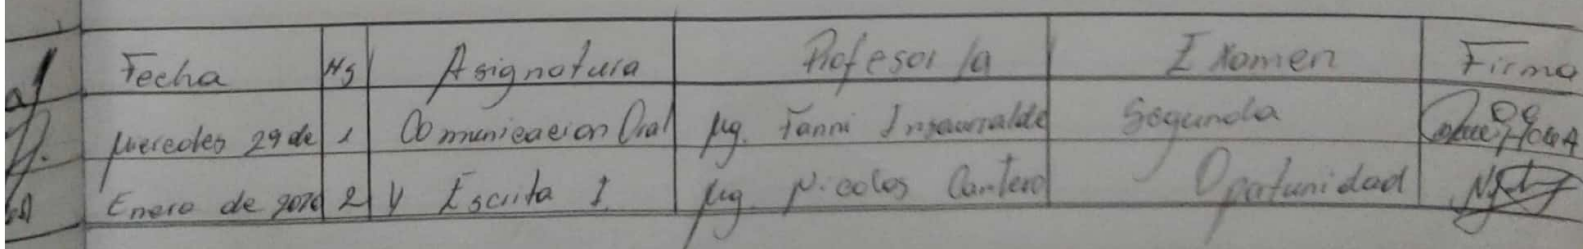 Fecha Hs Asignatura Profesor/a Examen Firma
Miercoles 29 de 1 Comunicacion Oral Mg. Fanni Insaurralde Segunda
Enero de 2020 2 y Escrita I Mg. Nicolas Cantero Oportunidad